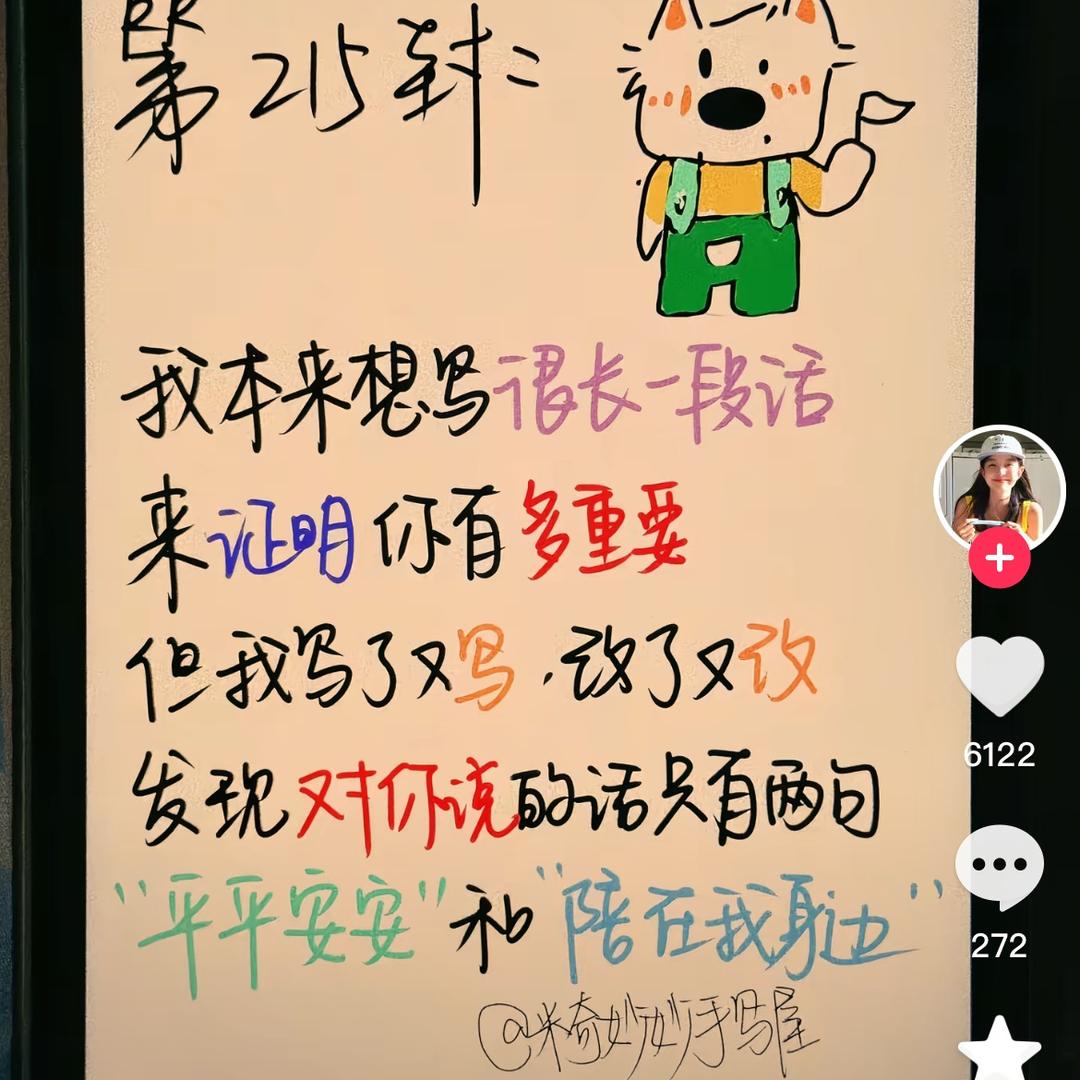 第215封:
我本来想写很长一段话
来证明你有多重要
但我写了又写,改了又改
发现对你说的话只有两句
“平平安安”和“陪在我身边”
@米奇妙妙手写屋
6122
272